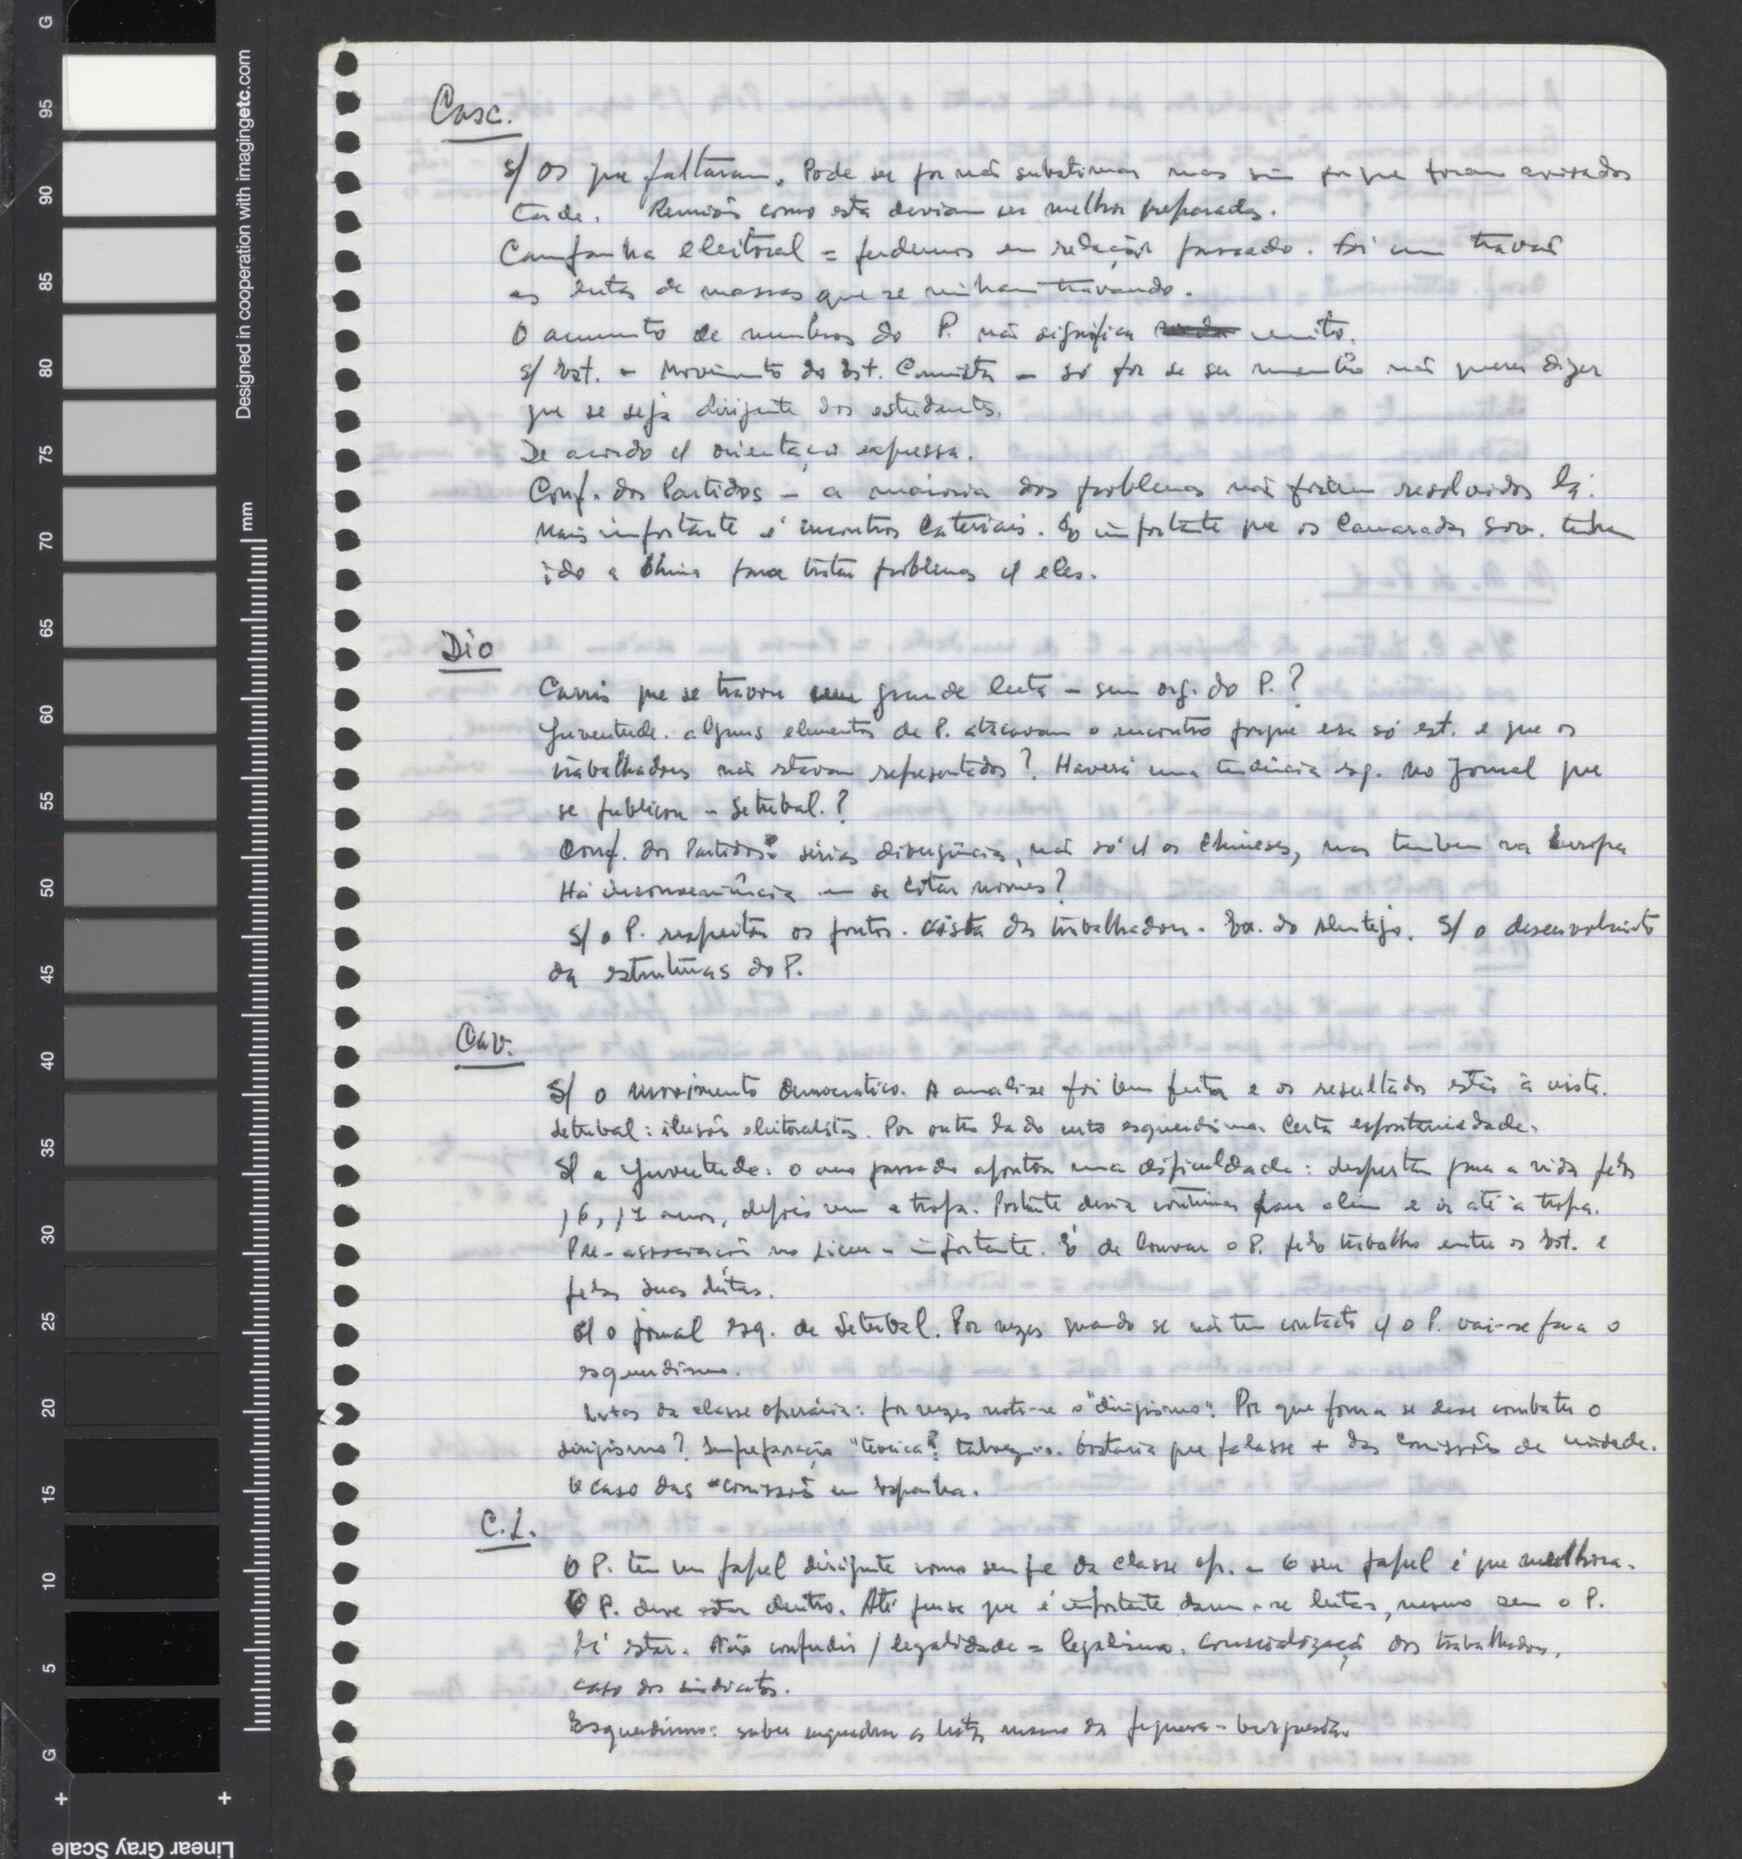 Casc.
S/ os que faltaram. Pode ser por não subestimar mas sim porque foram avisados
tarde. Reuniões como esta deviam ser melhor preparadas.
Campanha eleitoral = perdemos em relação passado. Foi um travão
as lutas de massas que se vinham travando.
O aumento de membros do P. não significa muito.
S/ Est. - Movimento do Est. Comunista - só por se ser membro não quer dizer
que se seja dirigente dos estudantes.
De acordo c/ orientação expressa.
Conf. dos Partidos - a maioria dos problemas não foram resolvidos lá.
Mais importante é encontros laterais. É importante que os Camaradas sov. tenham
ido a China para tratar problemas c/ eles.
Dio
Carris que se travou grande luta - sem org. do P.?
Juventude. alguns elementos do P. atacavam o encontro porque era só est. e que os
trabalhadores não estavam representados? Haverá uma tendência esq. no Jornal que
se publicou - Setubal.?
Conf. dos Partidos: sérias divergências, não só c/ os Chineses, mas tambem na Europa
Há inconveniência em se citar nomes?
S/ o P. respeitar os pontos. vista dos trabalhadores. Ex. do Alentejo. S/ o desenvolvimento
da estruturas do P.
Cav.
S/ o movimento democratico. A analise foi bem feita e os resultados estão à vista.
Setubal: ilusões eleitoralistas. Por outro lado certo esquerdismo. Certa espontaniedade.
S/ a Juventude: o ano passado apontou uma dificuldade: despertar para a vida pelos
16, 17 anos, depois vem a tropa. Portanto devia continuar para alem e ir até à tropa.
Pre-associação no Liceu - importante. É de louvar o P. pelo trabalho entre os Est. e
pelas suas lutas.
S/ o jornal esq. de Setubal. Por vezes quando se não tem contacto c/ o P. vai-se para o
esquerdismo.
Lutas da classe operária: por vezes nota-se o "dirigismo". Por que forma se deve combater o
dirigismo? Impreparação "teorica"? talvez. Gostaria que falasse + das Comissões de unidade.
O caso das comissões em Espanha.
C.L.
O P. tem um papel dirigente como sempre da classe op. - O seu papel é que melhora.
O P. deve estar dentro. Até pensa que é importante darem-se lutas, mesmo sem o P.
lá estar. Não confundir / legalidade = legalismo. Consciencialização dos trabalhadores,
caso dos sindicatos.
Esquerdismo: saber enquadrar as lutas mesmo da pequena-burguesia.